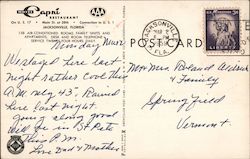 Capri
RESTAURANT
AAA
On U.S. 17 • Main St. at 20th • Connection to U.S. 1
JACKSONVILLE, FLORIDA
138 AIR-CONDITIONED ROOMS, FAMILY UNITS AND
APARTMENTS. DESK AND ROOM TELEPHONE
SERVICE TWENTY-FOUR HOURS DAILY
Monday Morn
JACKSONVILLE
FLA.
POST CARD
We stayed here last
night rather cool this
A.M. only 43°. Rained
here last night.
Going along good
will be in St Pete
This P.M.
Love Dad & Mother
Mr & Mrs. Roland Aldrich
& Family
Springfield
Vermont